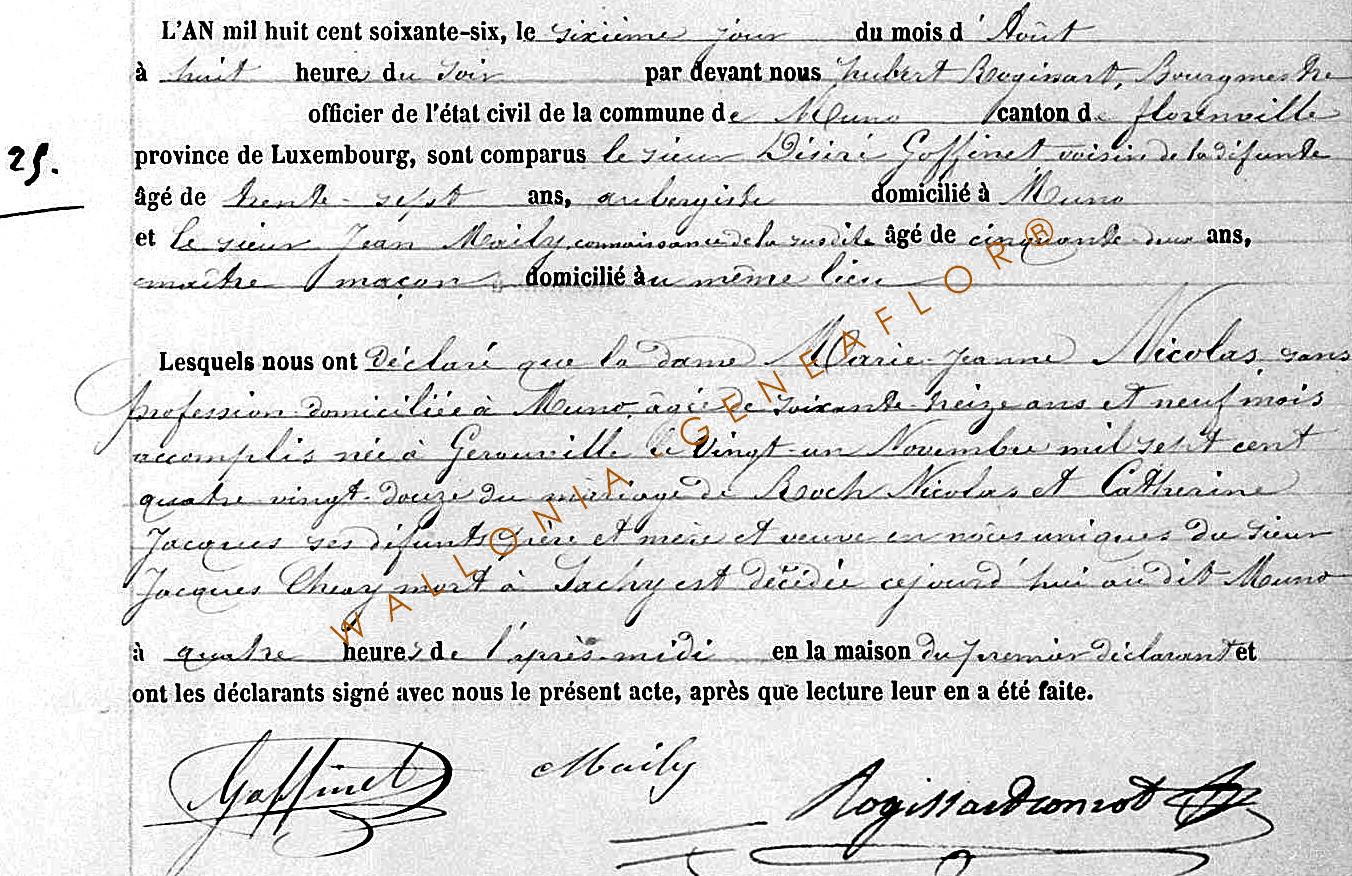 L'AN mil huit cent soixante-six, le sixième jour du mois d'Août
à huit heures du soir par devant nous hubert Rogissart, Bourgmestre
officier de l'état civil de la commune de Muno canton de florenville
25.
province de Luxembourg, sont comparus le sieur Désiré Goffinet voisin de la défunte
âgé de trente-sept ans, aubergiste domicilié à Muno
et le sieur Jean Maily, connaissance de la susdite âgé de cinquante-deux ans,
maître maçon domicilié au même lieu
Lesquels nous ont déclaré que la dame Marie-Jeanne Nicolas sans
profession domiciliée à Muno, âgée de soixante treize ans et neuf mois
accomplis née à Gerouville le vingt-un Novembre mil sept cent
quatre vingt-douze du mariage de Roch Nicolas et Catherine
Jacques ses défunts père et mère et veuve en nôces uniques du sieur
Jacques mort à Sachy est décédée cejourd'hui au dit Muno
à quatre heures de l'après-midi en la maison du premier déclarant et
ont les déclarants signé avec nous le présent acte, après que lecture leur en a été faite.
Goffinet Maily Rogissart
WALLONIA GENEAFLOR®